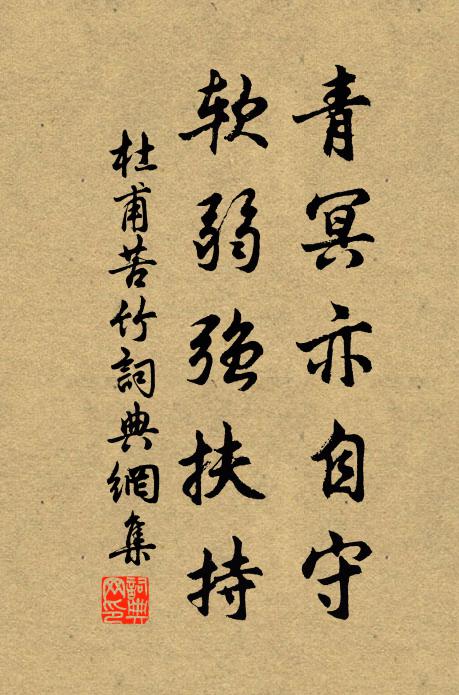 青冥亦自守
软弱强扶持
杜甫苦竹詞典網集
詞典网印